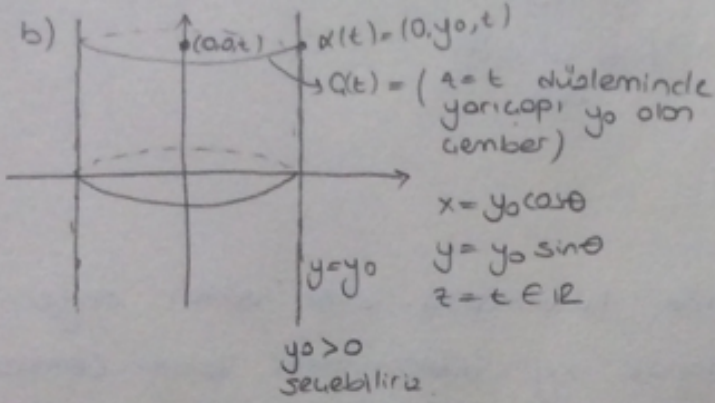 b)
(0,0,t)
α(t)=(0,y₀,t)
Q(t) = ( z=t düzleminde
yarıçapı y₀ olan
çember)
x=y₀cosθ
y=y₀ sinθ
z=t ∈ IR
y=y₀
y₀>0
seçebiliriz